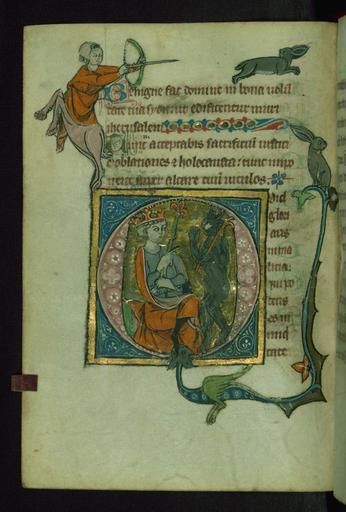 Benigne fac domine in bona volū
tate tua syon ut edificentur muri
iherusalem
Tunc acceptabis sacrificiū iusticie
oblationes ⁊ holocausta: tunc impo
nent super altare tuū vitulos.
Quid
glori
aris
in ma
licia:
qui po
tens
es in
iniqi
tate